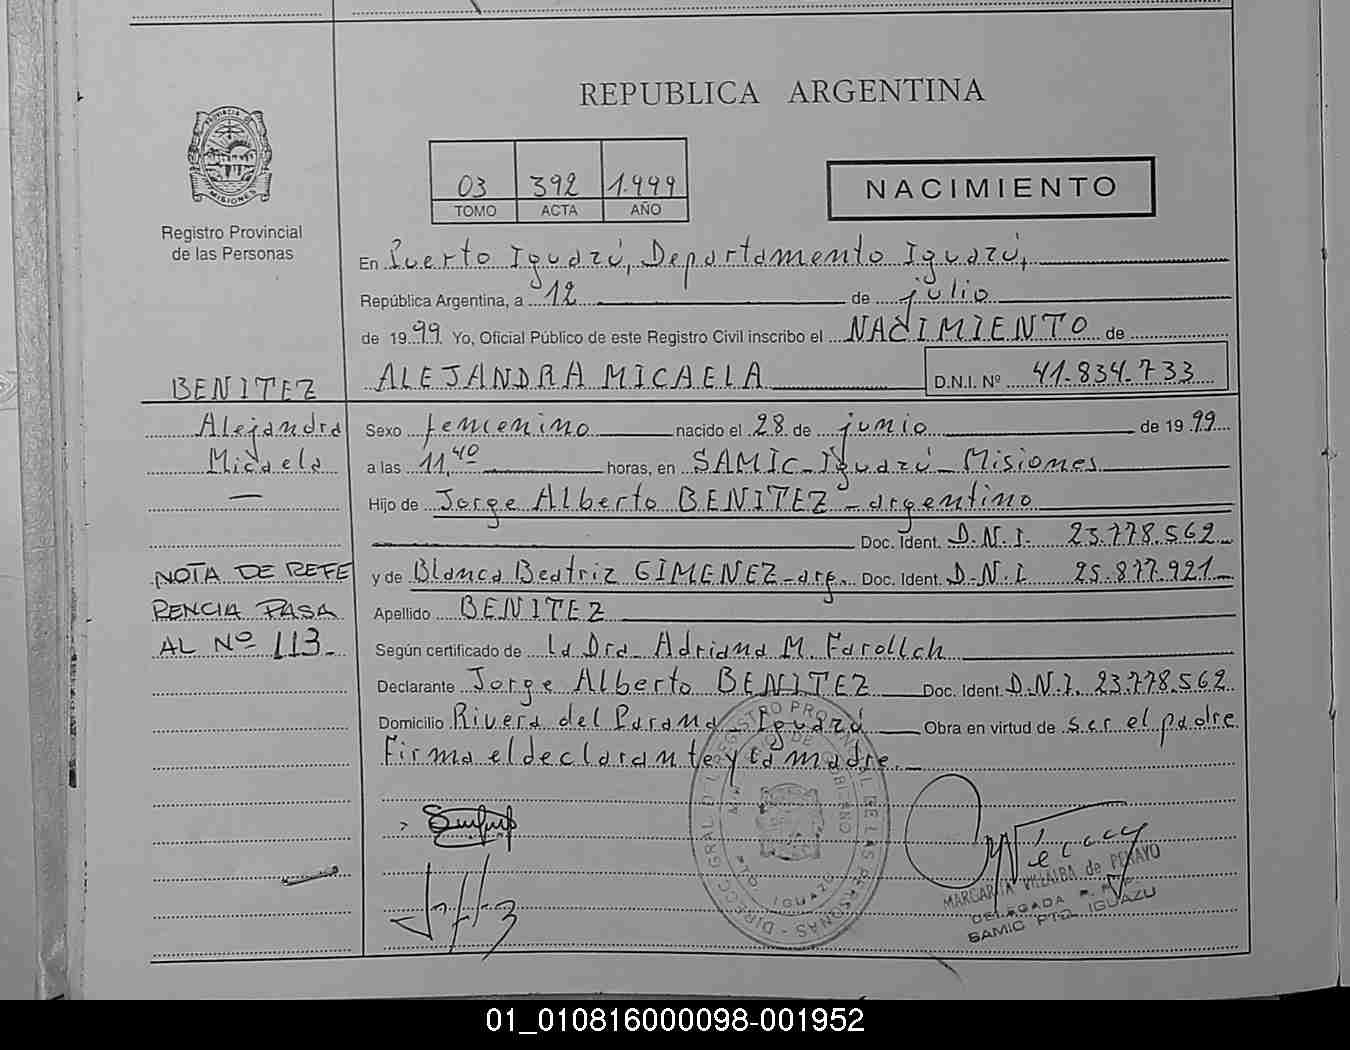 REPUBLICA ARGENTINA
PROVINCIA DE
MISIONES
Registro Provincial
de las Personas
03 392 1.999
TOMO ACTA AÑO
NACIMIENTO
En Puerto Iguazú, Departamento Iguazú,
República Argentina, a 12 de julio
de 19 99 Yo, Oficial Público de este Registro Civil inscribo el NACIMIENTO de
ALEJANDRA MICAELA D.N.I. Nº 41.834.733
BENITEZ
Alejandra
Micaela
NOTA DE REFE
RENCIA PASA
AL Nº 113.
Sexo femenino nacido el 28 de junio de 19 99
a las 11,40 horas, en SAMIC - Iguazú - Misiones
Hijo de Jorge Alberto BENITEZ - argentino
Doc. Ident. D.N.I. 23.778.562
y de Blanca Beatriz GIMENEZ - arg. Doc. Ident. D.N.I. 25.877.921
Apellido BENITEZ
Según certificado de la Dra. Adriana M.
Declarante Jorge Alberto BENITEZ Doc. Ident. D.N.I. 23.778.562
Domicilio Rivera del Paraná - Iguazú Obra en virtud de ser el padre
Firma el declarante y la madre.
DIRECC. GRAL. DEL REGISTRO PROVINCIAL DE LAS PERSONAS
IGUAZU
MARGARITA VILLALBA de PENAYO
DELEGADA
SAMIC PTO. IGUAZU
01_010816000098-001952